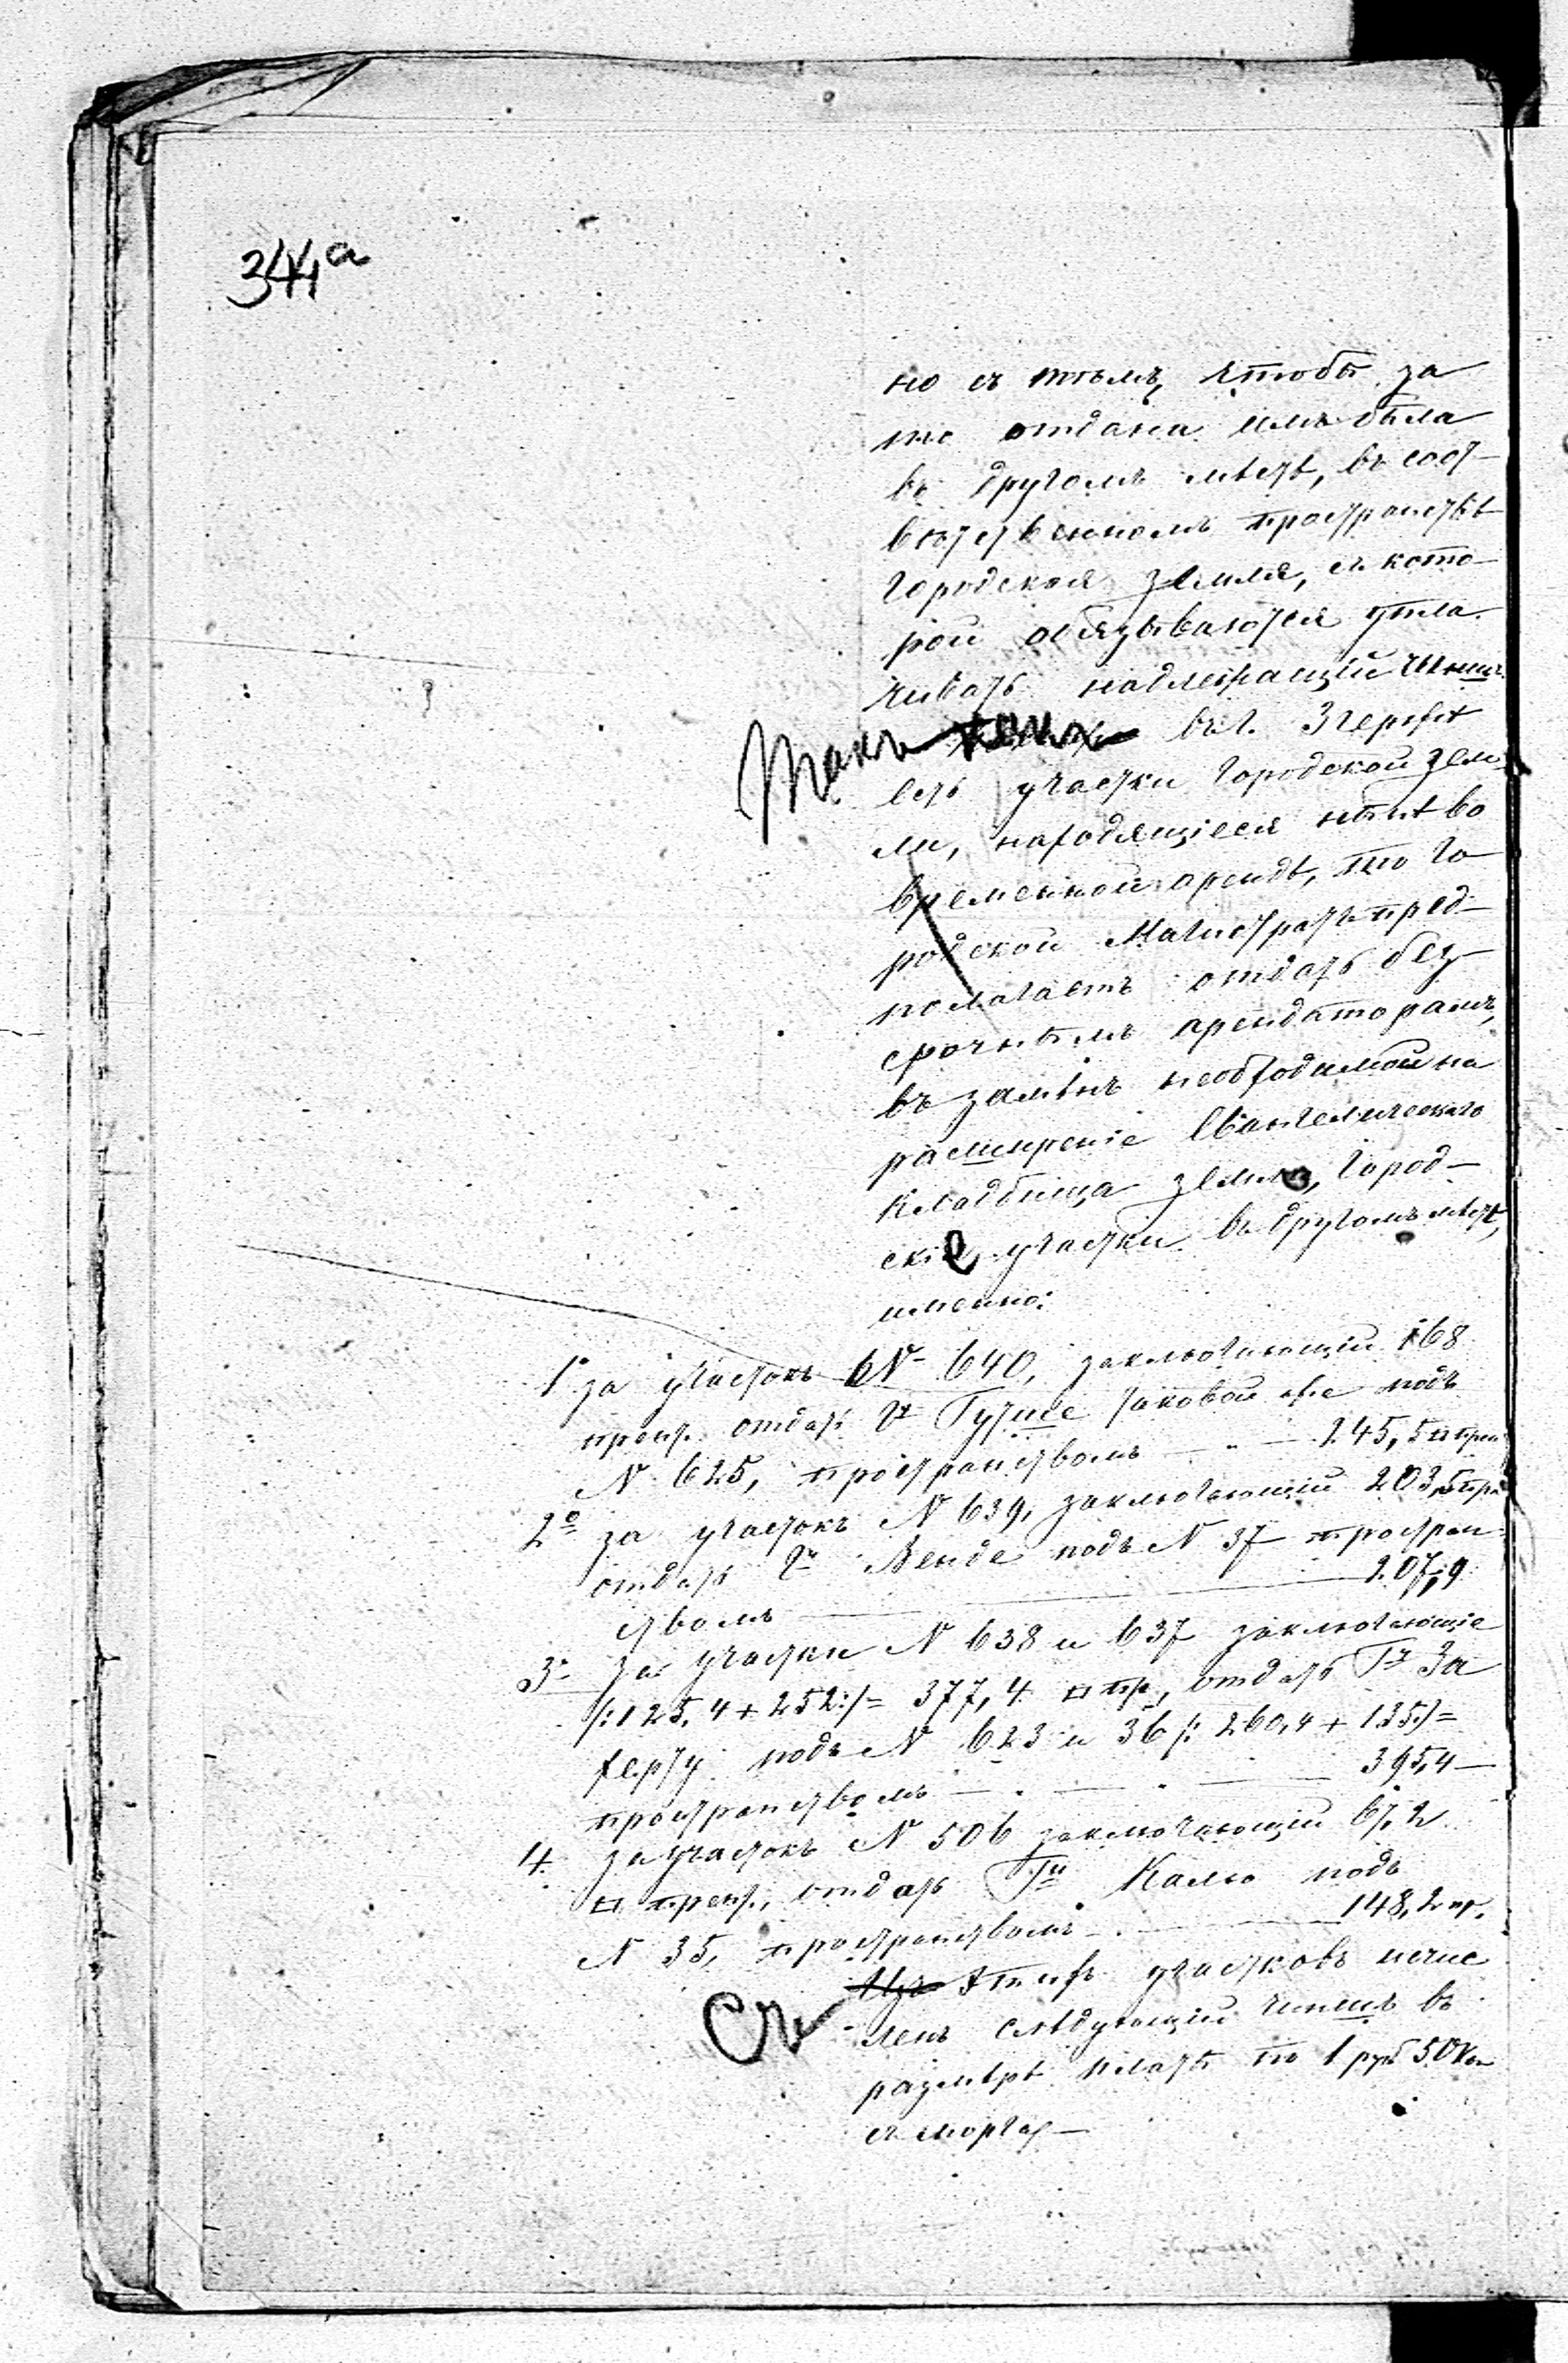 344а
но съ тѣмъ, чтобы за
то отдана имъ была
въ другомъ мѣстѣ, въ соот-
вѣтственномъ пространствѣ
городская земля, съ кото-
рой обязываются упла-
чивать надлежащій чиншъ.
Такъ какъ въ г. Згержѣ
есть участки городской зем-
ли, находящіеся нынѣ во
временной арендѣ, то Го-
родской Магистратъ пред-
полагаетъ отдать без-
срочнымъ арендаторамъ,
въ замѣнъ необходимой на
расширеніе Евангелическаго
кладбища земли, город-
скіе участки въ другомъ мѣстѣ,
именно:
1° за участокъ № 640, заключающій 168
прент. отдать Гъ Гутше таковой же подъ
№ 625, пространствомъ — " — 245,5 □ прен
2° за участокъ № 639, заключающій 203,5 пре
отдать Гъ Венде подъ № 37 простран-
ствомъ — 207,9
3° за участки № 638 и 637 заключающіе
/:125,4 + 252:/ = 377,4 □ пр, отдать Гъ За
херту подъ № 623 и 36 /: 260,4 + 135:/ =
пространствомъ — " — " — 395,4 —
4. за участокъ № 506 заключающій 67,2
□ прент., отдать Гну Калю подъ
№ 35, пространствомъ — 148,2 пр.
Изъ Съ этихъ участковъ исчис
ленъ слѣдующій чиншъ въ
размѣрѣ платы по 1 руб 50 коп
съ морга —